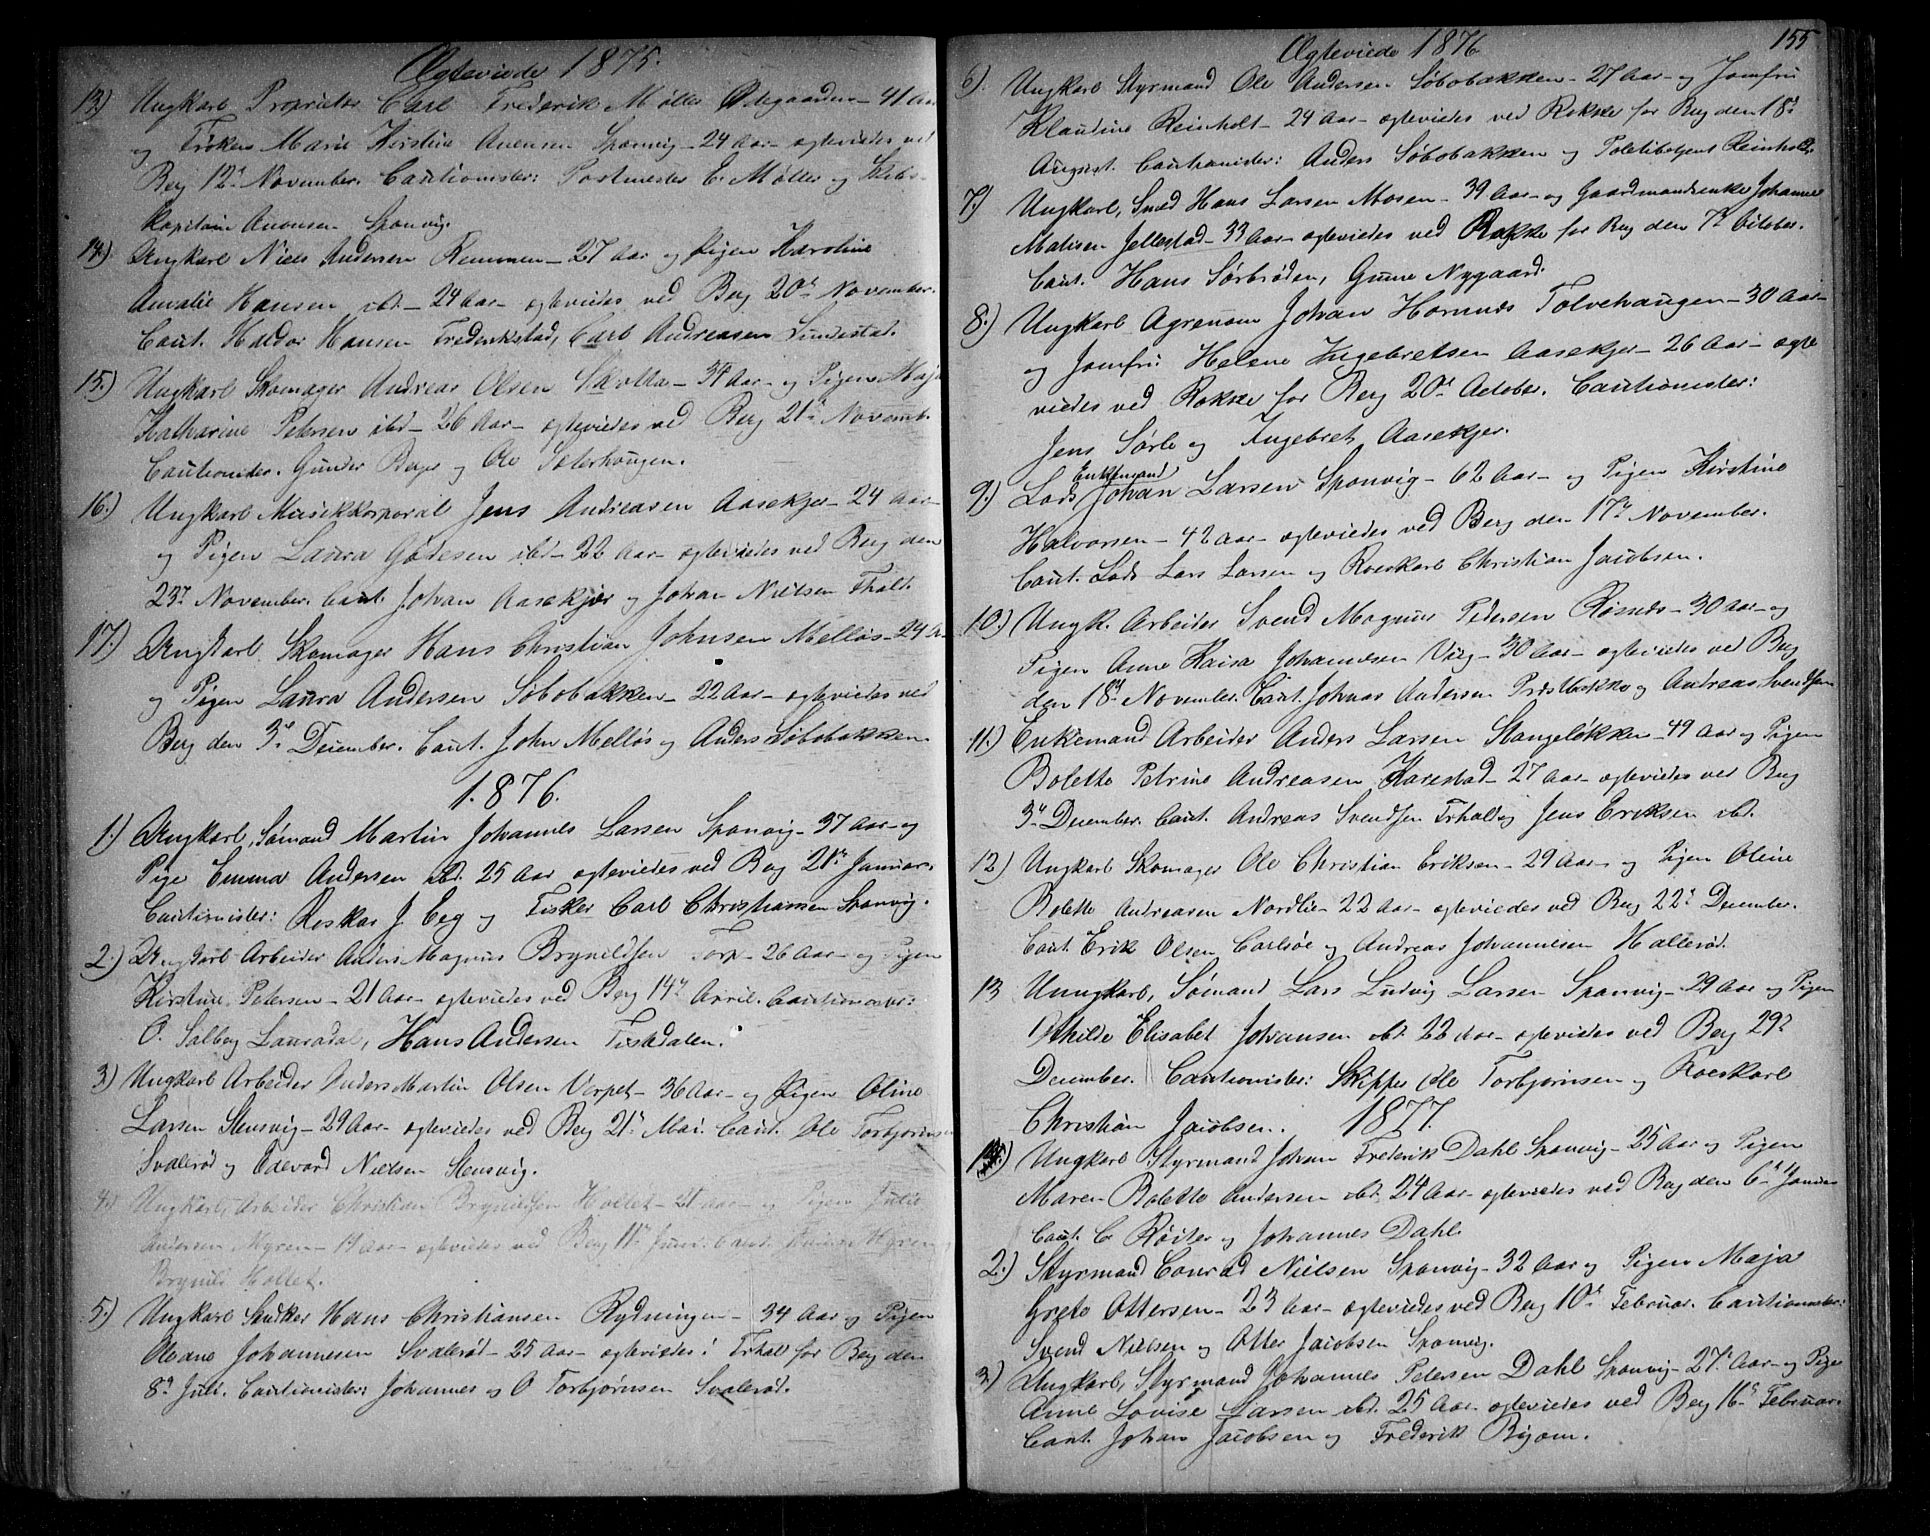 Ægteviede 1875.
13) Ungkarl Proprietær Carl Frederik Møller Ødegaarden – 41 Aar
og Frøken Marie Kirstine Anensen Sponvig – 24 Aar – ægteviedes ved
Berg 12te November. Cautionister: Postmester E. Møller og Skibs-
kapitain Anensen Sponvig.
14.) Ungkarl Niels Andersen Remmen – 27 Aar og Pigen Karoline
Amalie Hansen ibd – 24 Aar – ægteviedes ved Berg 20de November.
Caut. Haldor Hansen Frederikstad, Carl Andreasen Sundestad.
15.) Ungkarl Skomager Andreas Olsen – 34 Aar – og Pigen Maja
Katharine Petersen ibd – 26 Aar – ægteviedes ved Berg 21de Novemb.
Cautionister. Gunder Berger og Ole Sæterhaugen.
16.) Ungkarl Musikkorporal Jens Andreasen Aasekjer – 24 Aar –
og Pigen Laura ibd – 22 Aar – ægteviedes ved Berg den
23de November. Caut. Johan Aasekjer og Johan Nielsen Fhald.
17.) Ungkarl Skomager Hans Christian Johnsen Melløs – 24 A.
og Pigen Laura Andersen Søbobakken – 22 Aar – ægteviedes ved
Berg den 3de December. Caut. John Melløs og Anders Søbobakken.
1876.
1.) Ungkarl, Sømand Martin Johannes Larsen Sponvig – 37 Aar – og
Pige Emma Andersen ibd. 25 Aar ægteviedes ved Berg 21de Januar.
Cautionister: Roskar J. Eeg og Fisker Carl Christiansen Sponvig.
2.) Ungkarl Arbeider Anders Magnus Brynildsen Torp – 26 Aar – og Pigen
Kirstine Petersen – 21 Aar – ægteviedes ved Berg 14de April. Cautionister:
O. Solberg Lauradal, Hans Andersen Fiskdalen.
3) Ungkarl Arbeider Anders Martin Olsen Vorpet – 36 Aar – og Pigen Oline
Larsen Stensvig – 29 Aar – ægteviedes ved Berg 21de Mai. Caut. Ole Torbjørnsen
Svalerød og Edevard Nielsen Stensvig.
4.) Ungkarl, Arbeider Christian Brynildsen Hollet – 21 Aar – og Pigen Julie
Andersen Myren – 19 Aar – ægteviedes ved Berg 11te Juni. Caut. Myren
Brynild Hollet.
5.) Ungkarl Snedker Hans Christiansen Rydningen – 34 Aar og Pigen
Oleane Johannesen Svalerød – 25 Aar – ægteviedes i Frhal for Berg den
8de Juli. Cautionister: Johannes og O Torbjørnsen Svalerød.
155
Ægteviede 1876
6). Ungkarl Styrmand Ole Andersen Søbobakken – 27 Aar – og Jomfru
Klaudine Reinholt – 24 Aar – ægteviedes ved Rokke for Berg den 18de
August. Cautionister: Anders Søbobakken og Politibetjent Reinholt.
7.) Ungkarl, Smed Hans Larsen Mosen – 39 Aar – og Gaardmandsenke Johanne
Matisen Jellestad – 33 Aar – ægteviedes ved Rokke for Berg den 7de October.
Caut. Hans Sørbrøden, Gunne Nygaard.
8.) Ungkarl Agronom Johan Hornnes Tolvehaugen – 30 Aar –
og Jomfru Helene Ingebretsen Aasekjer – 26 Aar – ægte
viedes ved Rokke for Berg 20de October. Cautionister:
Jens Sørli og Ingebret Aasekjer.
9.) Lods Enkemand Johan Larsen Sponvig – 62 Aar – og Pigen Kirstine
Halvorsen – 42 Aar – ægteviedes ved Berg den 17de November.
Caut. Lods Lars Larsen og Roerkarl Christian Jacobsen.
10.) Ungk. Arbeider Svend Magnus Pedersen Røsnes – 30 Aar – og
Pigen Anne Kaisa Johannesen Viig – 30 Aar – ægteviedes ved Berg
den 18de November. Caut. Johnas Andersen Præstbakke og Andreas Svendsen
11.) Enkemand Arbeider Anders Larsen Stangeløkken – 49 Aar og Pigen
Bolette Petrine Andreasen Harestad – 27 Aar – ægteviedes ved Berg
3de December. Caut. Andreas Svendsen Frhald og Jens Eriksen ibd.
12.) Ungkarl Skomager Ole Christian Eriksen – 29 Aar – og Pigen Oline
Bolette Andreasen Nordlie – 22 Aar – ægteviedes ved Berg 22de December.
Caut. Erik Olsen Carlsøe og Andreas Johannesen Hallerød.
13 Unngkarl, Sømand Lars Ludvig Larsen Sponvig – 29 Aar og Pigen
Othilde Elisabet Johansen ibd. 22 Aar – ægteviedes ved Berg 29de
December. Cautionister: Skipper Ole Torbjørnsen og Roerkarl
Christian Jacobsen. 1877.
1.) Ungkarl Styrmand Johan Frederik Dahl Sponvig – 25 Aar og Pigen
Maren Bolette Andersen ibd. 24 Aar – ægteviedes ved Berg den 6te Januar
Caut. C. Røiter og Johannes Dahl.
2.) Styrmand Conrad Nielsen Sponvig – 32 Aar og Pigen Maja
Grete Ottersen – 23 Aar – ægteviedes ved Berg 10de Februar. Cautionister:
Svend Nielsen og Otter Jacobsen Sponvig.
3.) Ungkarl, Styrmand Johannes Petersen Dahl Sponvig – 27 Aar – og Pige
Anne Lovise Larsen ibd. 25 Aar – ægteviedes ved Berg 16de Februar.
Caut. Johan Jacobsen og Frederik Bjørn.